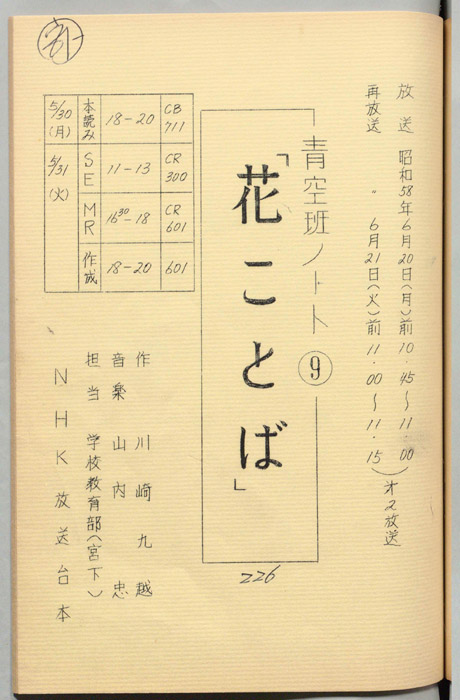 放送 昭和58年6月20日(月)前10.45〜11.00
再放送 〃 6月21日(火)前11.00〜11.15)オ2放送
青空班ノート⑨
「花ことば」
226
5/30(月) 本読み 18-20 CB711
5/31(火) SE 11-13 CR300
MR 16³⁰-18 CR601
作成 18-20 601
作 川崎九越
音楽 山内忠
担当 学校教育部(宮下)
NHK放送台本